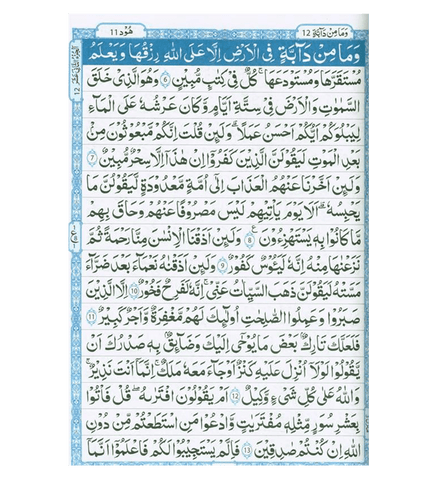 وَمَا مِنْ دَآبَّةٍ 12
هُوْد 11
وَمَا مِنْ دَآبَّةٍ فِى الْاَرْضِ اِلَّا عَلَى اللّٰهِ رِزْقُهَا وَيَعْلَمُ
مُسْتَقَرَّهَا وَمُسْتَوْدَعَهَا ؕ كُلٌّ فِىْ كِتٰبٍ مُّبِيْنٍ ﴿6﴾ وَهُوَ الَّذِىْ خَلَقَ
السَّمٰوٰتِ وَالْاَرْضَ فِىْ سِتَّةِ اَيَّامٍ وَّكَانَ عَرْشُهٗ عَلَى الْمَآءِ
لِيَبْلُوَكُمْ اَيُّكُمْ اَحْسَنُ عَمَلًا ؕ وَلَئِنْ قُلْتَ اِنَّكُمْ مَّبْعُوْثُوْنَ مِنْۢ
بَعْدِ الْمَوْتِ لَيَقُوْلَنَّ الَّذِيْنَ كَفَرُوْۤا اِنْ هٰذَاۤ اِلَّا سِحْرٌ مُّبِيْنٌ ﴿7﴾
وَلَئِنْ اَخَّرْنَا عَنْهُمُ الْعَذَابَ اِلٰٓى اُمَّةٍ مَّعْدُوْدَةٍ لَّيَقُوْلُنَّ مَا
يَحْبِسُهٗ ؕ اَلَا يَوْمَ يَاْتِيْهِمْ لَيْسَ مَصْرُوْفًا عَنْهُمْ وَحَاقَ بِهِمْ
مَّا كَانُوْا بِهٖ يَسْتَهْزِءُوْنَ ﴿8﴾ وَلَئِنْ اَذَقْنَا الْاِنْسَانَ مِنَّا رَحْمَةً ثُمَّ
نَزَعْنٰهَا مِنْهُ ۚ اِنَّهٗ لَيَـُٔوْسٌ كَفُوْرٌ ﴿9﴾ وَلَئِنْ اَذَقْنٰهُ نَعْمَآءَ بَعْدَ ضَرَّآءَ
مَسَّتْهُ لَيَقُوْلَنَّ ذَهَبَ السَّيِّاٰتُ عَنِّىْ ؕ اِنَّهٗ لَفَرِحٌ فَخُوْرٌ ﴿10﴾ اِلَّا الَّذِيْنَ
صَبَرُوْا وَعَمِلُوا الصّٰلِحٰتِ ؕ اُولٰٓئِكَ لَهُمْ مَّغْفِرَةٌ وَّاَجْرٌ كَبِيْرٌ ﴿11﴾
فَلَعَلَّكَ تَارِكٌۢ بَعْضَ مَا يُوْحٰٓى اِلَيْكَ وَضَآئِقٌۢ بِهٖ صَدْرُكَ اَنْ
يَّقُوْلُوْا لَوْلَاۤ اُنْزِلَ عَلَيْهِ كَنْزٌ اَوْ جَآءَ مَعَهٗ مَلَكٌ ؕ اِنَّمَاۤ اَنْتَ نَذِيْرٌ ؕ
وَاللّٰهُ عَلٰى كُلِّ شَىْءٍ وَّكِيْلٌ ﴿12﴾ اَمْ يَقُوْلُوْنَ افْتَرٰىهُ ؕ قُلْ فَاْتُوْا
بِعَشْرِ سُوَرٍ مِّثْلِهٖ مُفْتَرَيٰتٍ وَّادْعُوْا مَنِ اسْتَطَعْتُمْ مِّنْ دُوْنِ
اللّٰهِ اِنْ كُنْتُمْ صٰدِقِيْنَ ﴿13﴾ فَاِلَّمْ يَسْتَجِيْبُوْا لَكُمْ فَاعْلَمُوْۤا اَنَّمَاۤ